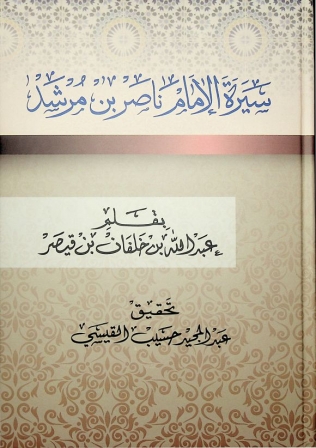 سيرة الإمام ناصر بن مرشد
بقلم
عبد الله بن خلفان بن قيصر
تحقيق
عبد المجيد حسيب القيسي